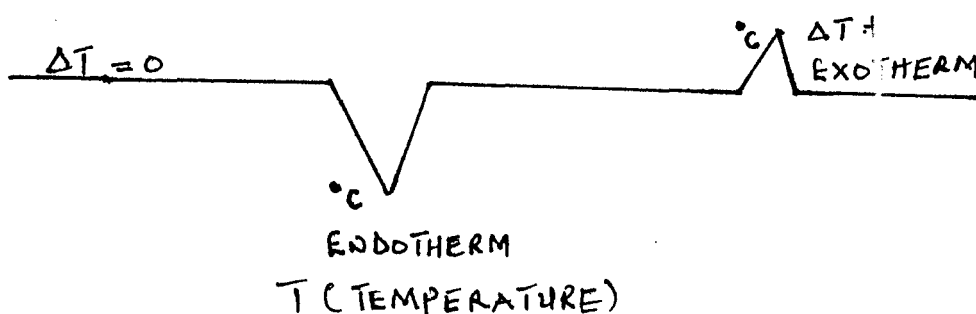 ΔT = 0
°C ΔT +
EXOTHERM
°C
ENDOTHERM
T (TEMPERATURE)